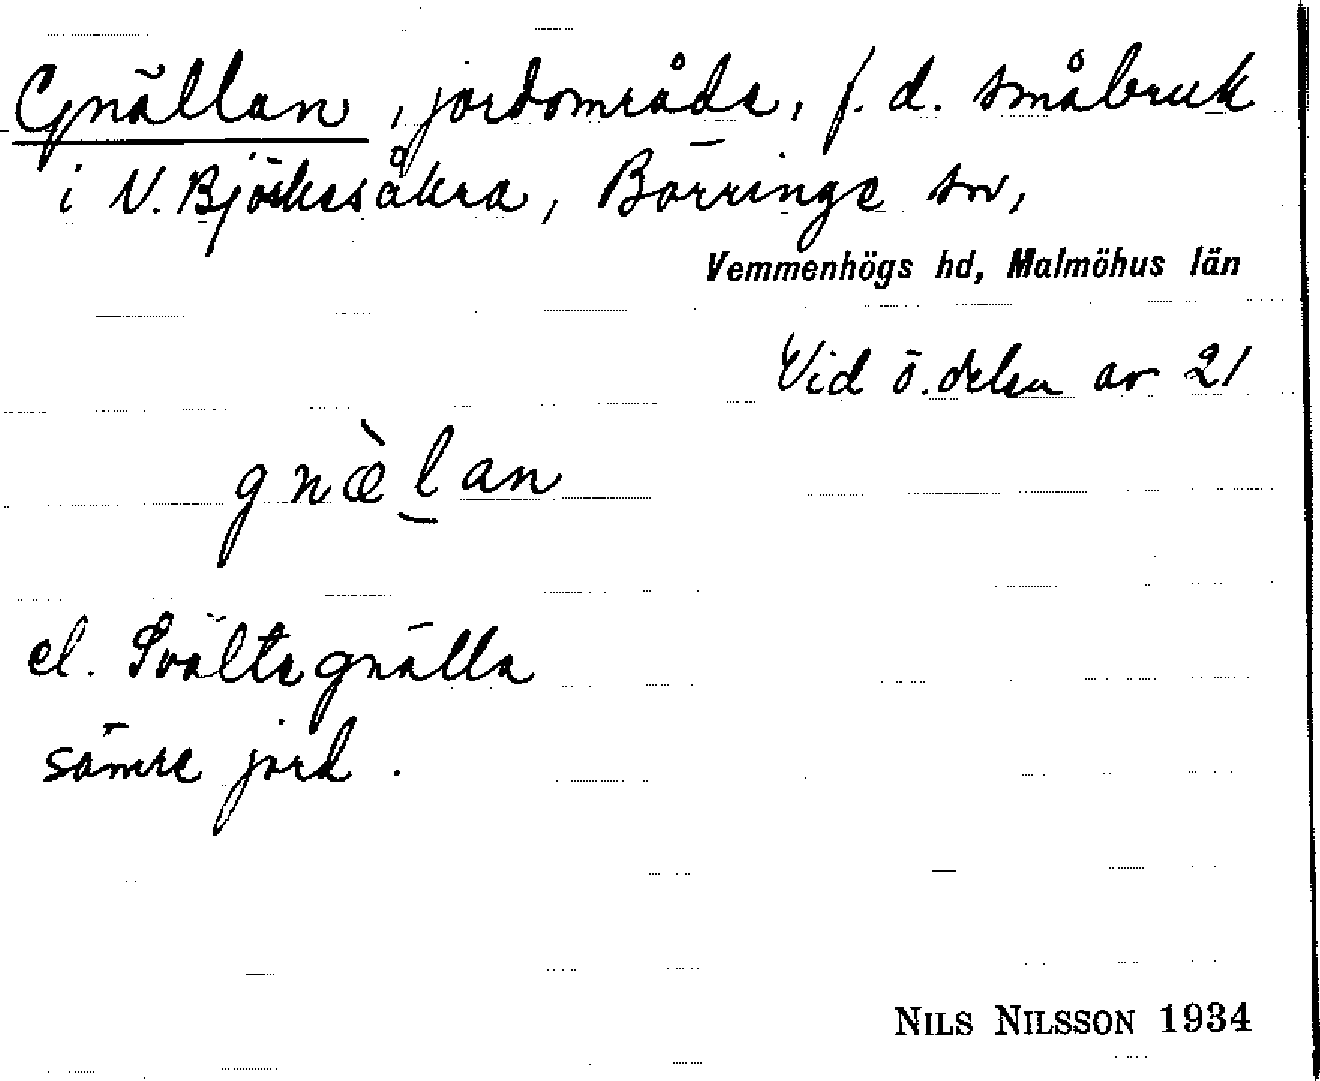 Gnällan, jordområde, f.d. småbruk
i V. Björkesåkra, Börringe sn,
Vemmenhögs hd, Malmöhus län
Vid ö. delen av 21
gnæ̀l̠an
el. Svältegnälla
sämre jord.
NILS NILSSON 1934